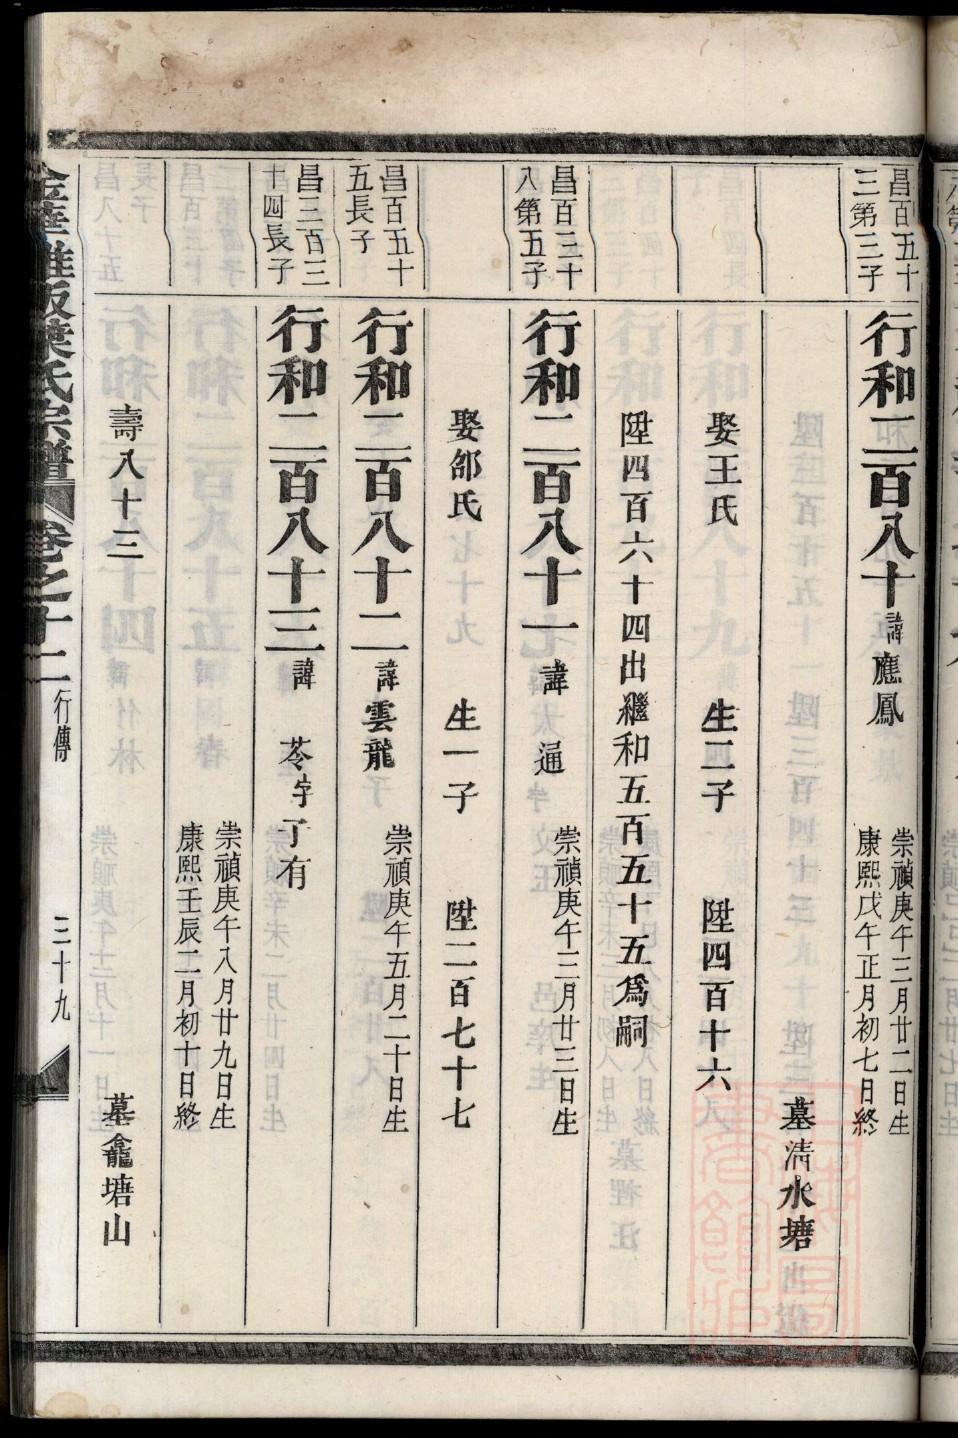 昌百五十
三第三子
行和二百八十諱應鳳
崇禎庚午三月廿二日生
康熙戊午正月初七日終
墓清水塘
娶王氏 生二子 陞四百十六
陞四百六十四出繼和五百五十五為嗣
昌百三十
八第五子
行和二百八十一諱逼
崇禎庚午三月廿三日生
娶郤氏 生一子 陞二百七十七
昌百五十
五長子
行和二百八十二諱雲龍
崇禎庚午五月二十日生
昌三百三
十四長子
行和二百八十三諱苓字了有
崇禎庚午八月廿九日生
康熙壬辰二月初十日終
壽八十三 墓龕塘山
葉氏宗譜 卷之十二 行傳 三十九